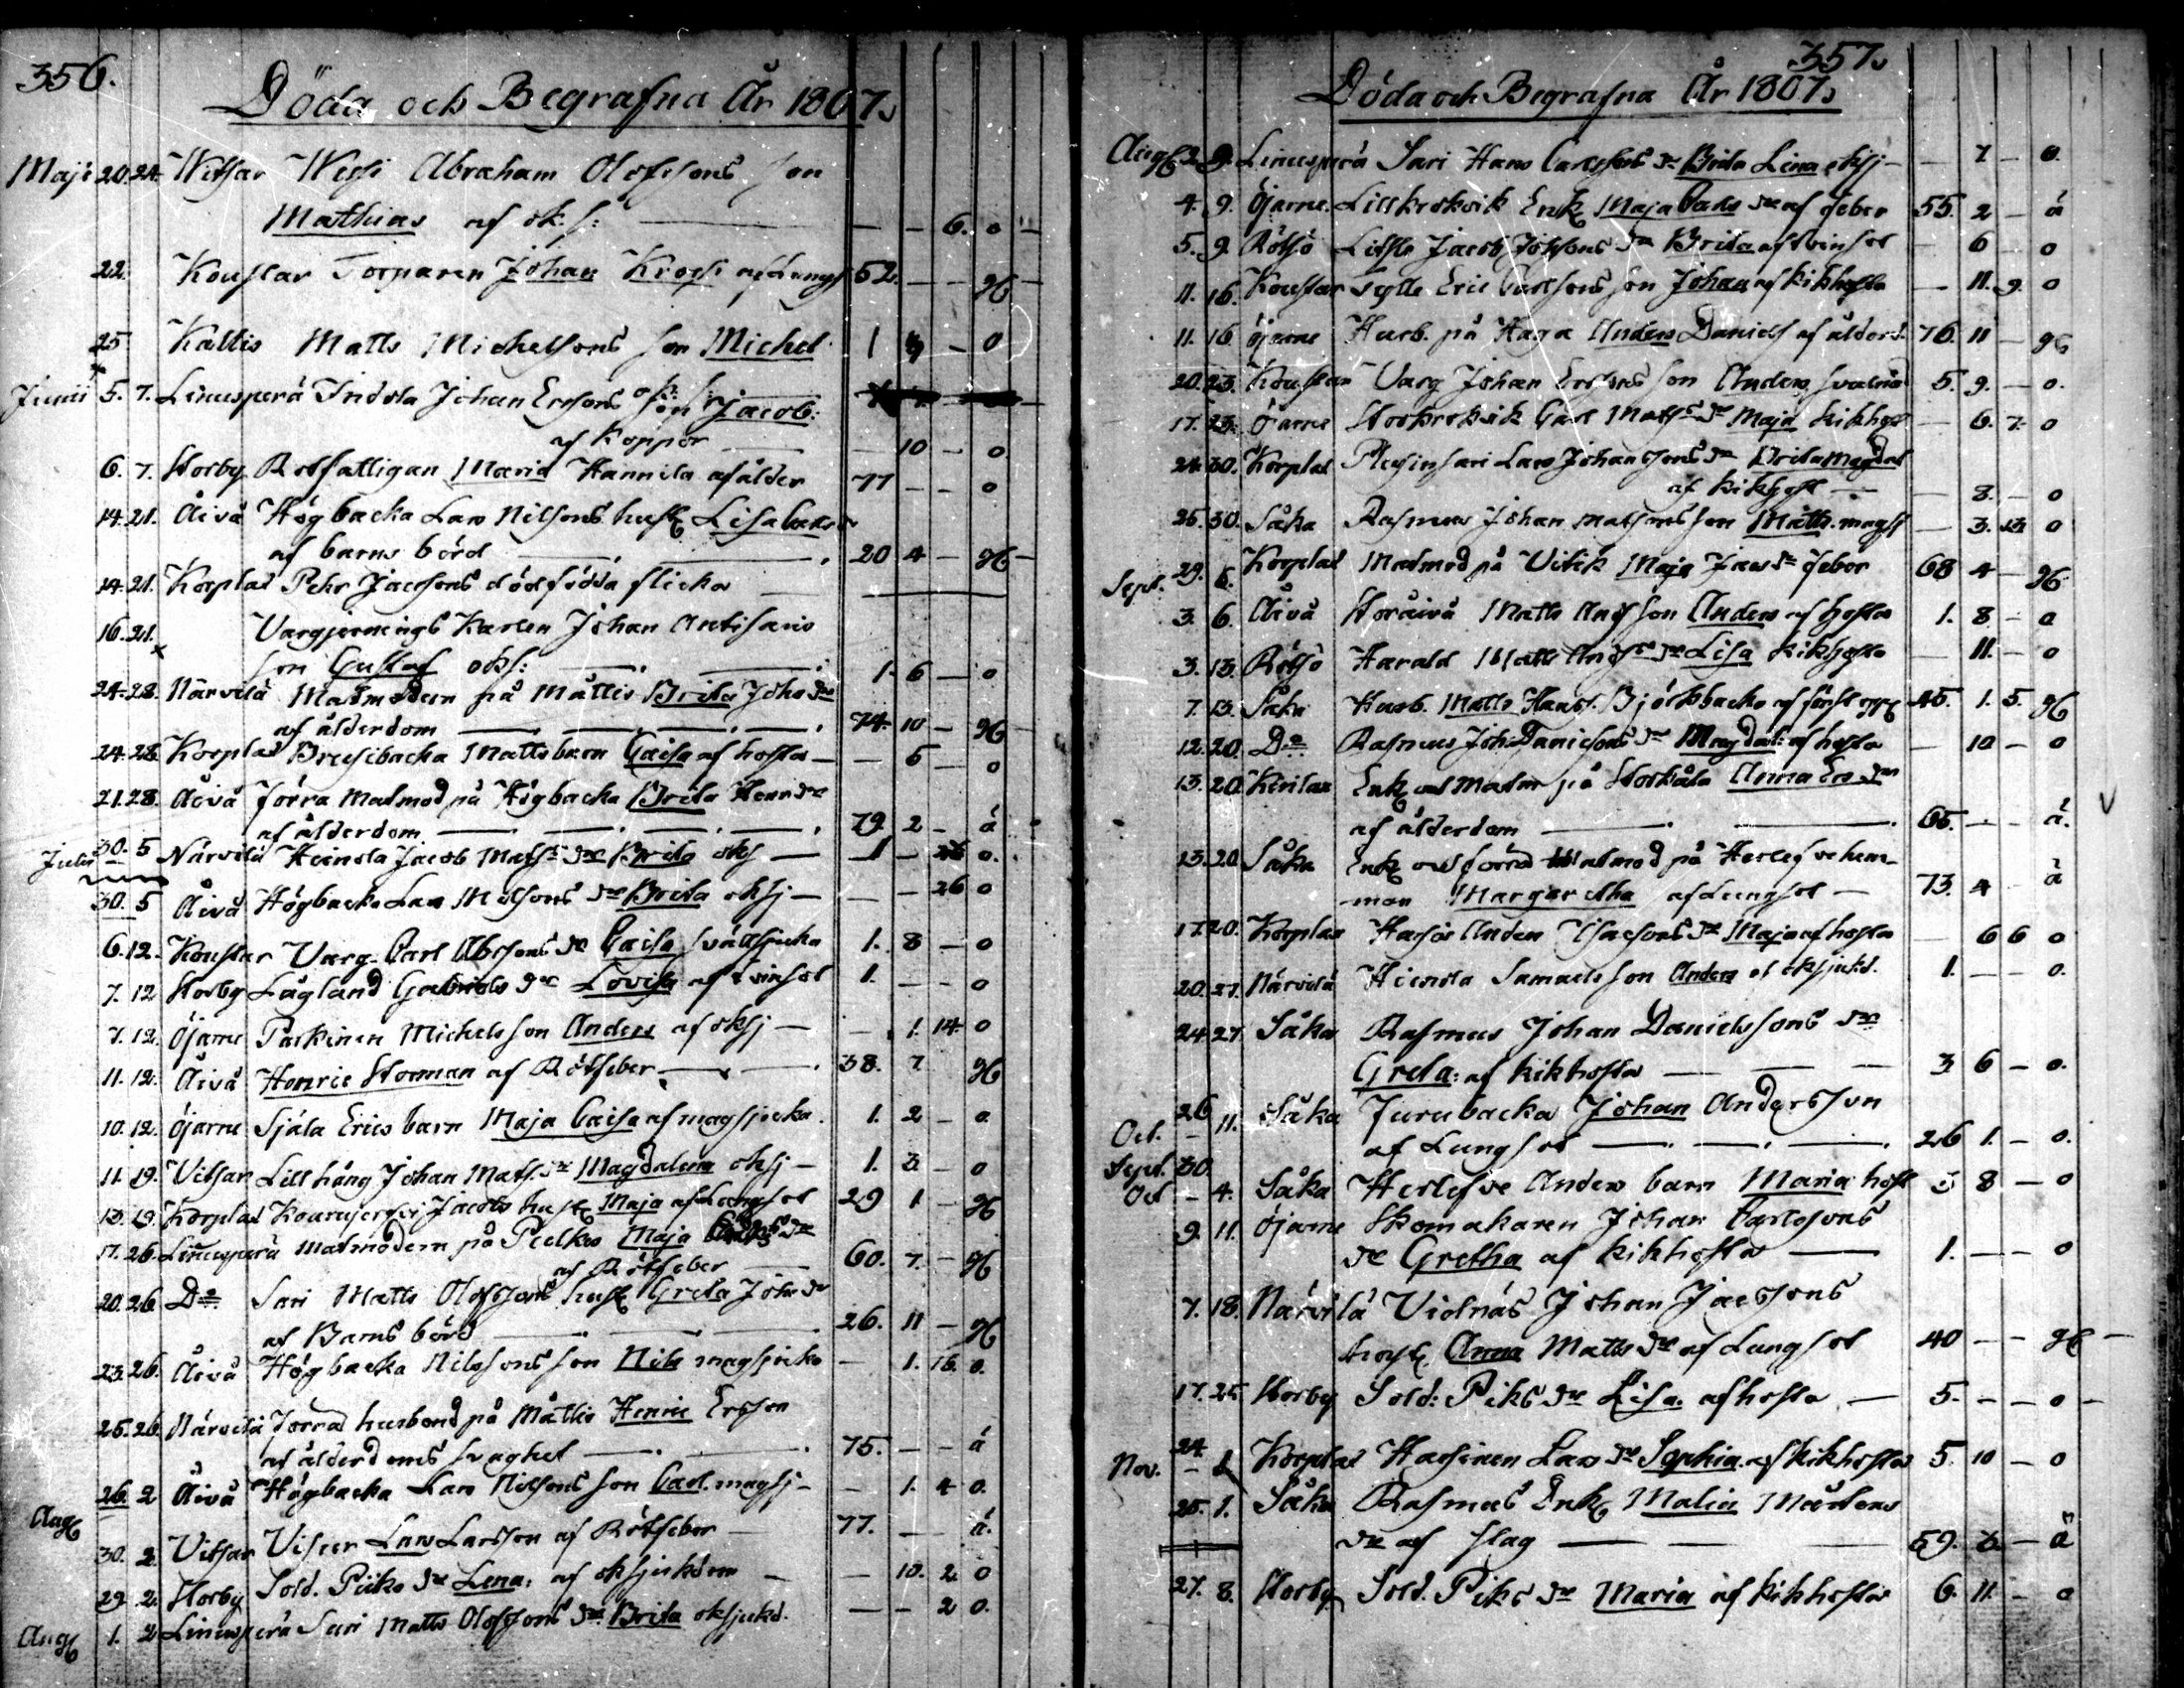 356.
Döda och Begrafna År 1807.
Maji 20. 24. Witsar Abraham Olofssons son
Mathias af ok. s: — — 6. o
22. Koustar Torparen Johan af Lungs 52. — — gh
25 Kaltis Matts Michelsons son Michel 1 9 — o
Junii 5. 7. Linusperä Indola Johan Ersons son Jacob:
af Koppor — 10 — o
6. 7. Storby Rotfattigan Maria Hannila af ålder 77 — — o
14. 21. Åivå Högbacka Lars Nilsons hust Lisa
af barns börd 20 4 — gh
14. 21. Korplax Pehr Jacsons dödfödda flicka
16. 21. Vargjernings Karlen Johan
son Gustaf oks: 1. 6 — o
24. 28. Närvilä Matmodern på Måttis Brita Johs dr
af ålderdom 74. 10 — gh
24. 28. Korplax Brusibacka Matts barn Caisa af hosta — 5 — o
21. 28. Åivå förra Matmod på Högbacka Brita Henr dr
af ålderdom 79. 2 — ä
Julii 30. 5 Närvilä Heinola Jacob Mats dr Brita oksj — 1 — o.
30. 5 Åivå Högbacka Lars Nilsons dr Brita oksj — — 26 o
6. 12. Koustar Varg Carl Abrsons dr Caisa svältsjuka 1. 8 — o
7. 12 Storby Lågland Gabriels dr Lovisa af tvinsot 1. — — o
7. 12. Öjarne Paskinen Michels son Anders af oksj — — 1. 14. o
11. 12. Åivå Henric Storman af Rötfeber 38. 7 gh
10. 12. Öjarne Själa Erics barn Maja Caisa af magsjuka. 1. 2 — o.
11. 19. Vitsar Lillhång Johan Mats dr Magdalena oksj — 1. 3. — o
13. 19. Korplax Jacobs hust Maja af Lungsot 29 1 — gh
17. 26. Linusperä Matmodern på Peelkos Maja dr
af Rötfeber 60. 7. — gh
20. 26 Do Sari Matts Olofssons hust Greta Johs dr
af Barns börd 26. 11 — gh
23. 26. Åivå Högbacka Nilssons son Nils magsjuka — 1. 16. o.
25. 26. Närvilä förra husbond på Måttis Henric Ersson
af ålderdoms svaghet 75. — — ä
26. 2 Åivå Högbacka Lars Nilsons son Carl. magsj — — 1. 4 o.
Aug
30. 2. Vitsar Lars Larsson af Rötfeber — 77. — ä.
29. 2. Storby Sold. Piiks dr Lena: af oksjukdom — — 10. 2 o
Aug 1. 2 Linusperä Sari Matts Olofssons dr Brita oksjukd. — — 2 o.
357.
Döda och Begrafna År 1807.
Aug 2. 9. Linusperä Sari Hans Carlsons dr Brita Lena oksj — — 7 — o.
4. 9. Öjarne. Lillkrokvik Enk Maja Carls dr af feber 55. 2 — ä
5. 9. Rötsö Jacob Johsons dr Brita af tvinsot — 6 — o
11. 16. Koustar Eric Carlsons son Johan af kikhosta — 11. 9. o
11. 16 Öjarne Husb. på Haga Anders Daniels af ålderd. 76. 11 — gh
20. 23. Koustar Varg Johan Ersons son Anders 5. 9. — o.
17. 23. Öjarne Storkrokvik Carl Matss dr Maja kikhost — 6. 7. o
24. 30. Korplax Lars Johanssons dr Brita Magdal
af kikhost — 8. — o
25. 30. Såka Rasmus Johan Matsons son Matts. magsj — 3. 13. o
Sept. 29. 6. Korplax Matmod på Vitik Maja Jacs dr feber 68 4 — gh.
3. 6. Åivå Storåivå Matts Ands son Anders af hosta 1. 8 — o
3. 13. Rötsö Harald Matts Ands dr Lisa kikhosta — 11. — o
7. 13. Såka Husb. Matts Hans. Björkbacka 45. 1. 5. gh
12. 20. Do Rasmus Joh: Danielsons dr Magdal: af hosta — 10 — o
13. 20. Kivilax Enk på Storkåla Anna Ers dr
af ålderdom 65. — — ä.
13. 20 Såka Enk förra Matmod på Herlefve hem-
man Margaretha af Lungsot — 73. 4 — ä
17. 20. Korplax Anders Isacsons dr Maja af hosta — 6 6 o
20. 27. Närvilä Heinola Samuels son Anders af oksjukd. 1. — — o.
24. 27. Såka Rasmus Johan Danielssons dr
Greta: af kikhosta 3 6 — o.
26
Oct. — 11. Såka Furubacka Johan Andersson
af Lungsot 26 1. — o.
Sept. 30.
Oct — 4. Såka Herlefve Anders barn Maria host 3 8 — o
9. 11. Öjarne Skomakaren Johan Carlssons
dr Gretha af kikhosta 1. — — o
7. 18. Närvilä Vidnäs Johan Jacssons
hust Anna Matts dr af Lungsot 40 — — gh
17. 25 Storby Sold: Piks dr Lisa. af hosta — 5. — — o
24
Nov. — 1 Korplax Hassinen Lars dr Sophia. af kikhosta 5. 10 — o
25. 1. Såka Rasmus Enk Malin Mårtens
dr af slag 59. — ä
27. 8. Storby Sold. Piks dr Maria af kikhosta 6. 11. — o